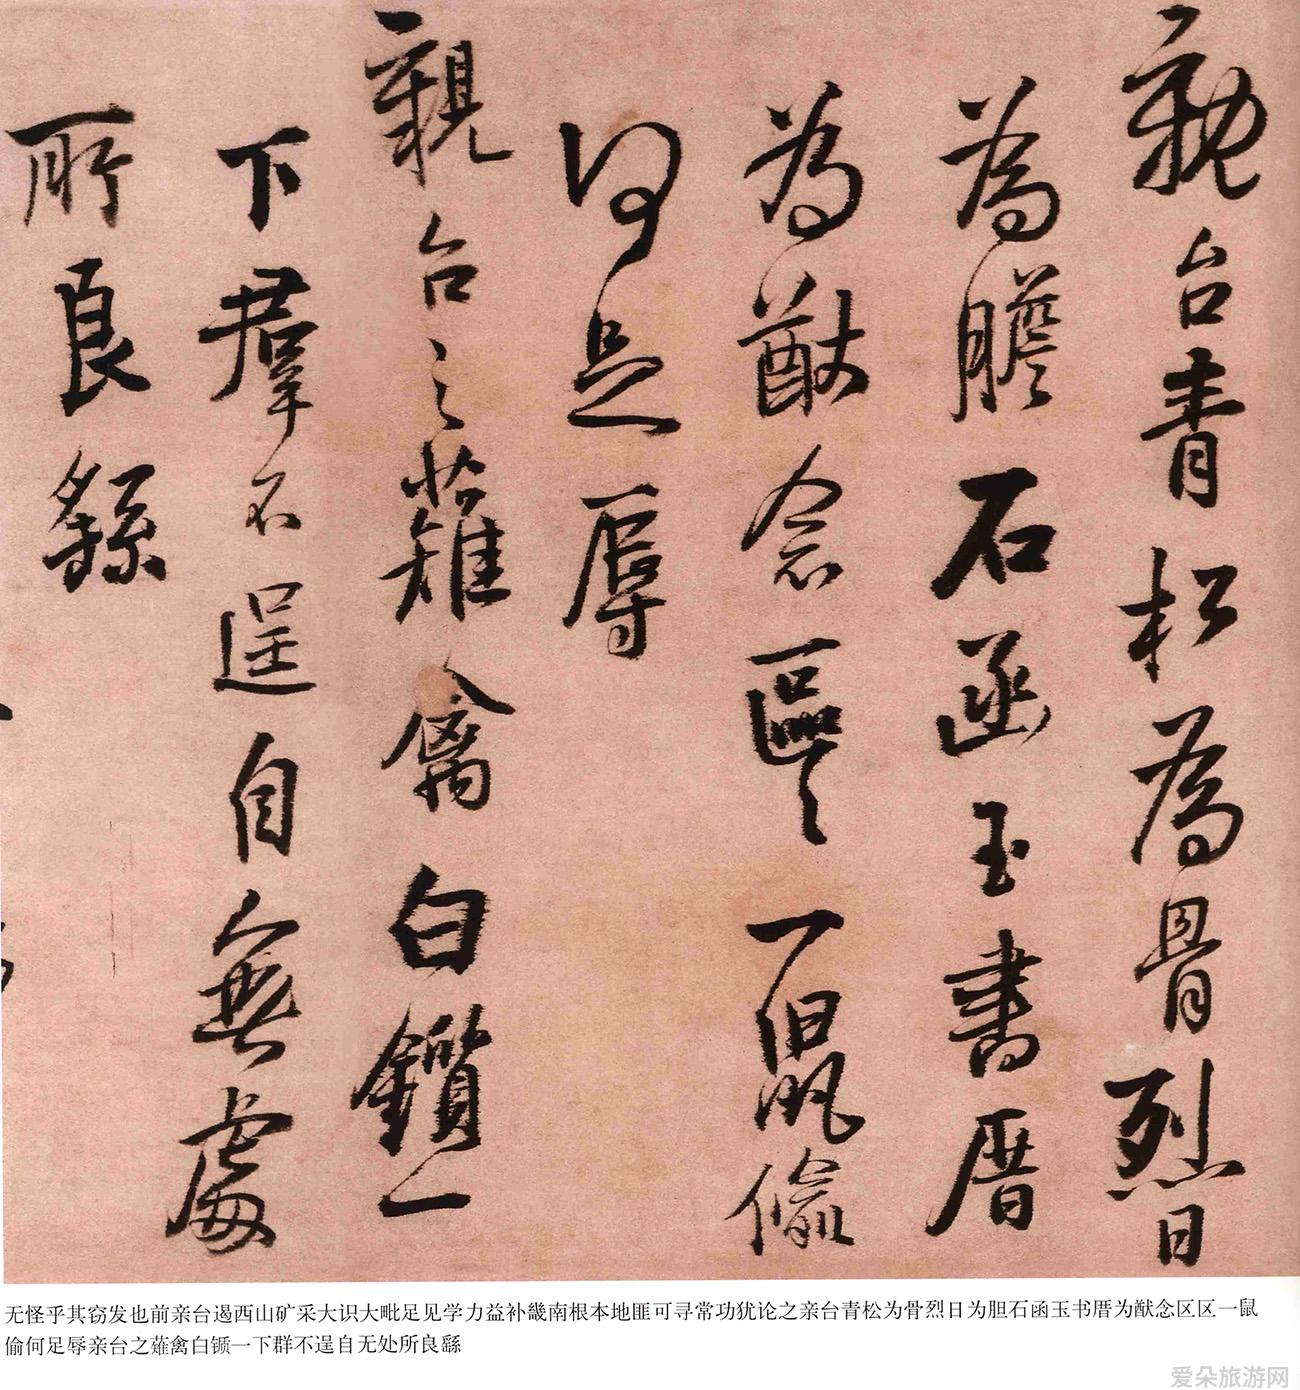 親台青松為骨烈日
為膽石函玉書厝
為猷念區區一鼠偷
何足辱
親台之薙禽白鑕一
下羣不逞自無處
所良繇
无怪乎其窃发也前亲台遏西山矿采大识大毗足见学力益补畿南根本地匪可寻常功犹论之亲台青松为骨烈日为胆石函玉书厝为猷念区区一鼠
偷何足辱亲台之薙禽白锧一下群不逞自无处所良繇
爱朵旅游网